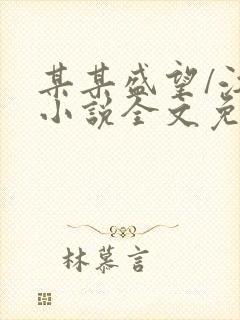 某某盛望/
小说全文免
林慕言